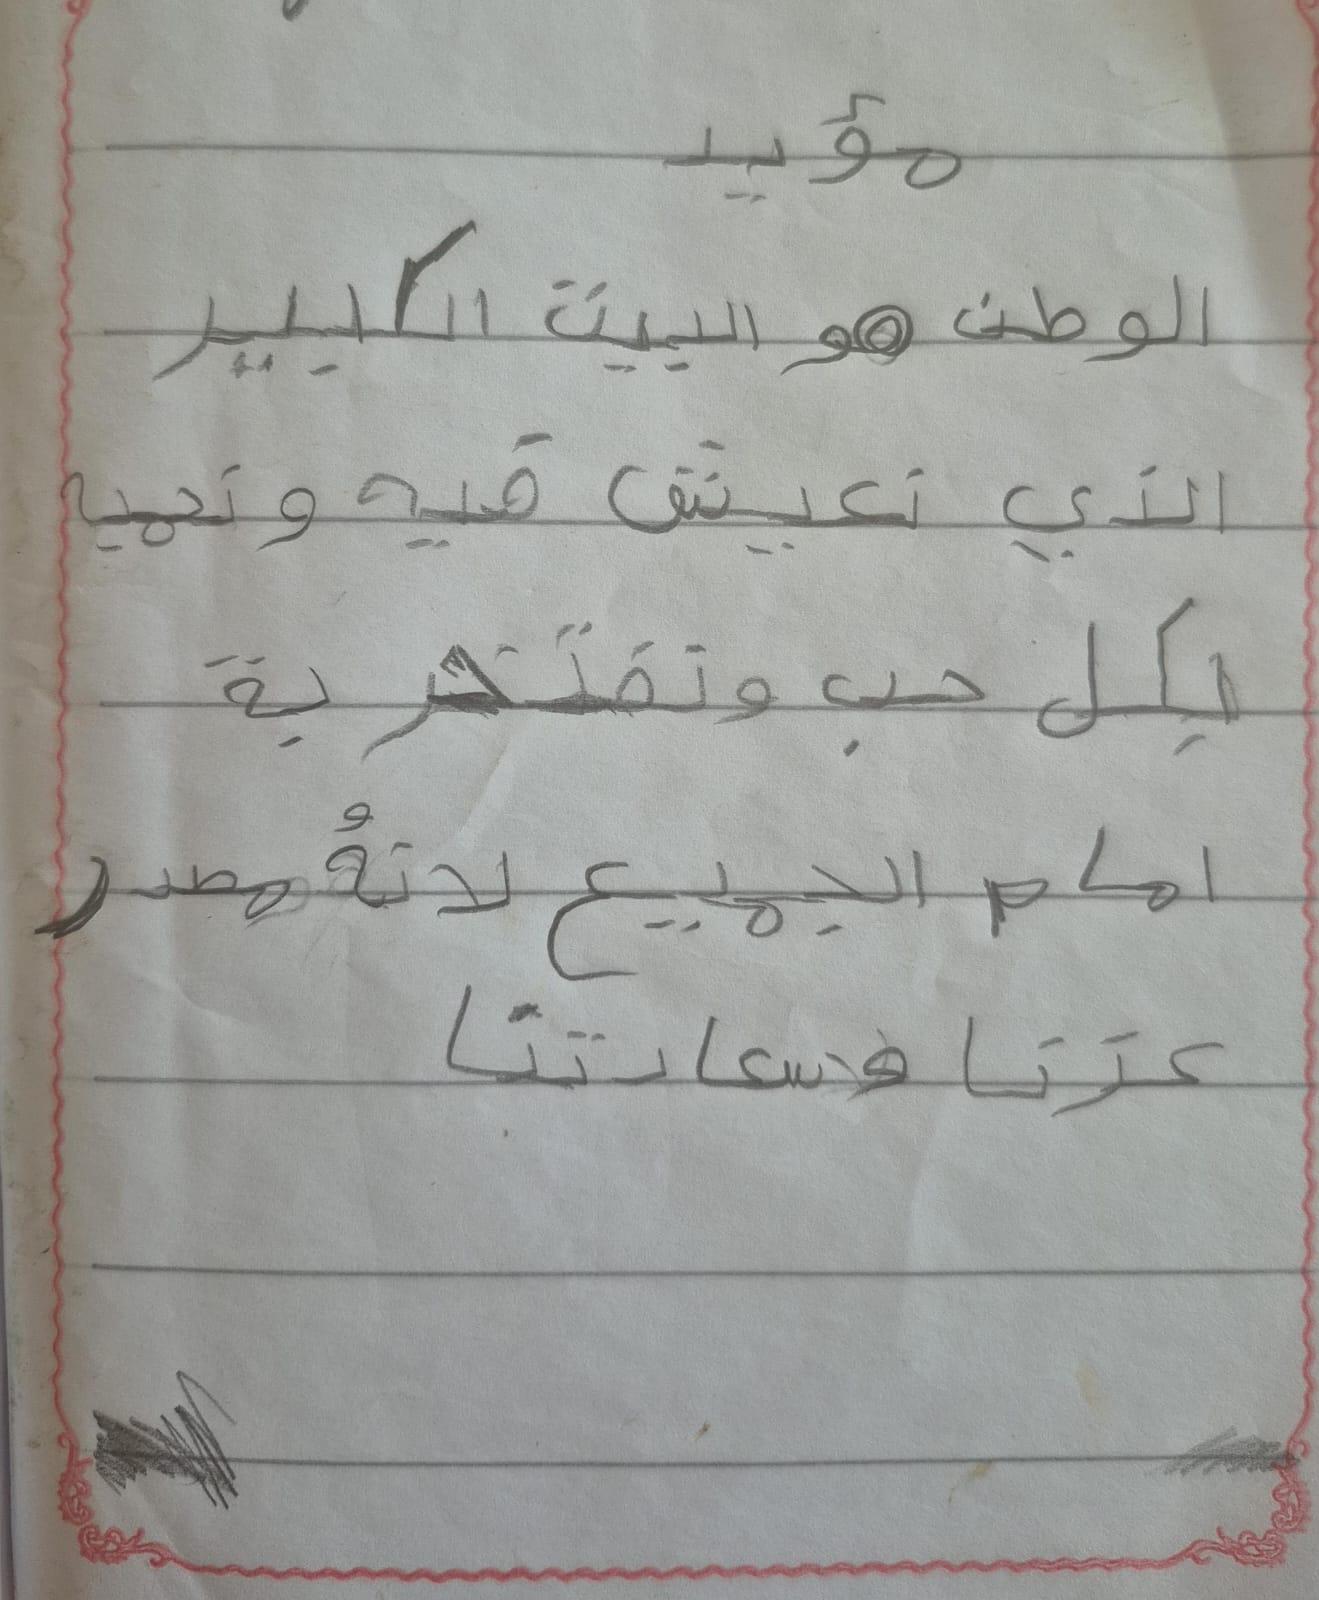 مؤيد
الوطن هو البيت الكبير
الذي نعيش فيه ونحميه
بكل حب ونفتخر بة
امام الجميع لانهُ مصدر
عزنا وسعادتنا